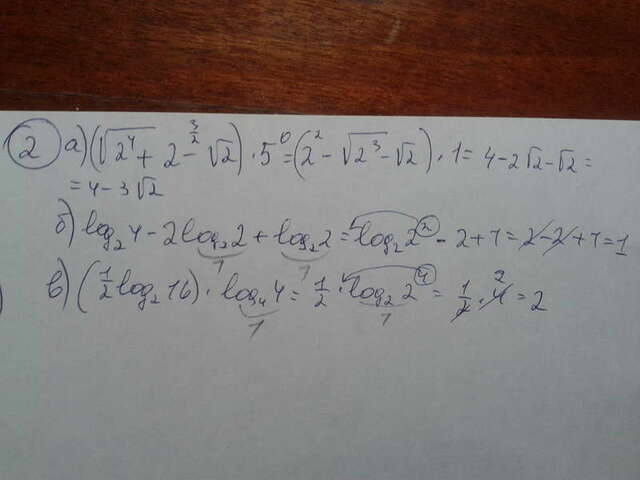 2 а) (√2⁴ + 2^(3/2) - √2) · 5⁰ = (2² - √2³ - √2) · 1 = 4 - 2√2 - √2 =
= 4 - 3√2
б) log₂4 - 2log₂2 + log₂2 = log₂2² - 2 + 1 = 2 - 2 + 1 = 1
1 1
в) (1/2 log₂16) · log₄4 = 1/2 · log₂2⁴ = 1/2 · 4 2 = 2
1 1